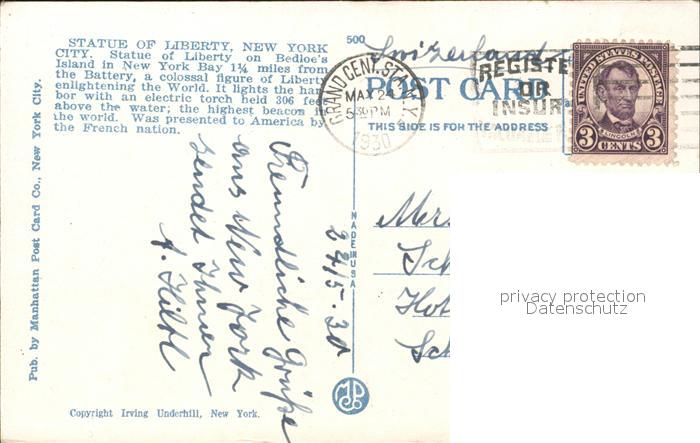 STATUE OF LIBERTY, NEW YORK
CITY. Statue of Liberty on Bedloe's
Island in New York Bay 1¾ miles from
the Battery, a colossal figure of Liberty
enlightening the World. It lights the har-
bor with an electric torch held 306 feet
above the water; the highest beacon in
the world. Was presented to America by
the French nation.
Pub. by Manhattan Post Card Co., New York City.
Freundliche Grüße
aus New York
sendet Ihnen
A. Hiltl
24/5-30
Copyright Irving Underhill, New York.
MADE IN U.S.A
500
Switzerland
POST CARD
THIS SIDE IS FOR THE ADDRESS
GRAND CENT. STA. N.Y.
MAY 24
530PM
1930
REGISTE
OR
INSUR
UNITED STATES POSTAGE
LINCOLN
3 CENTS 3
Hot
privacy protection
Datenschutz